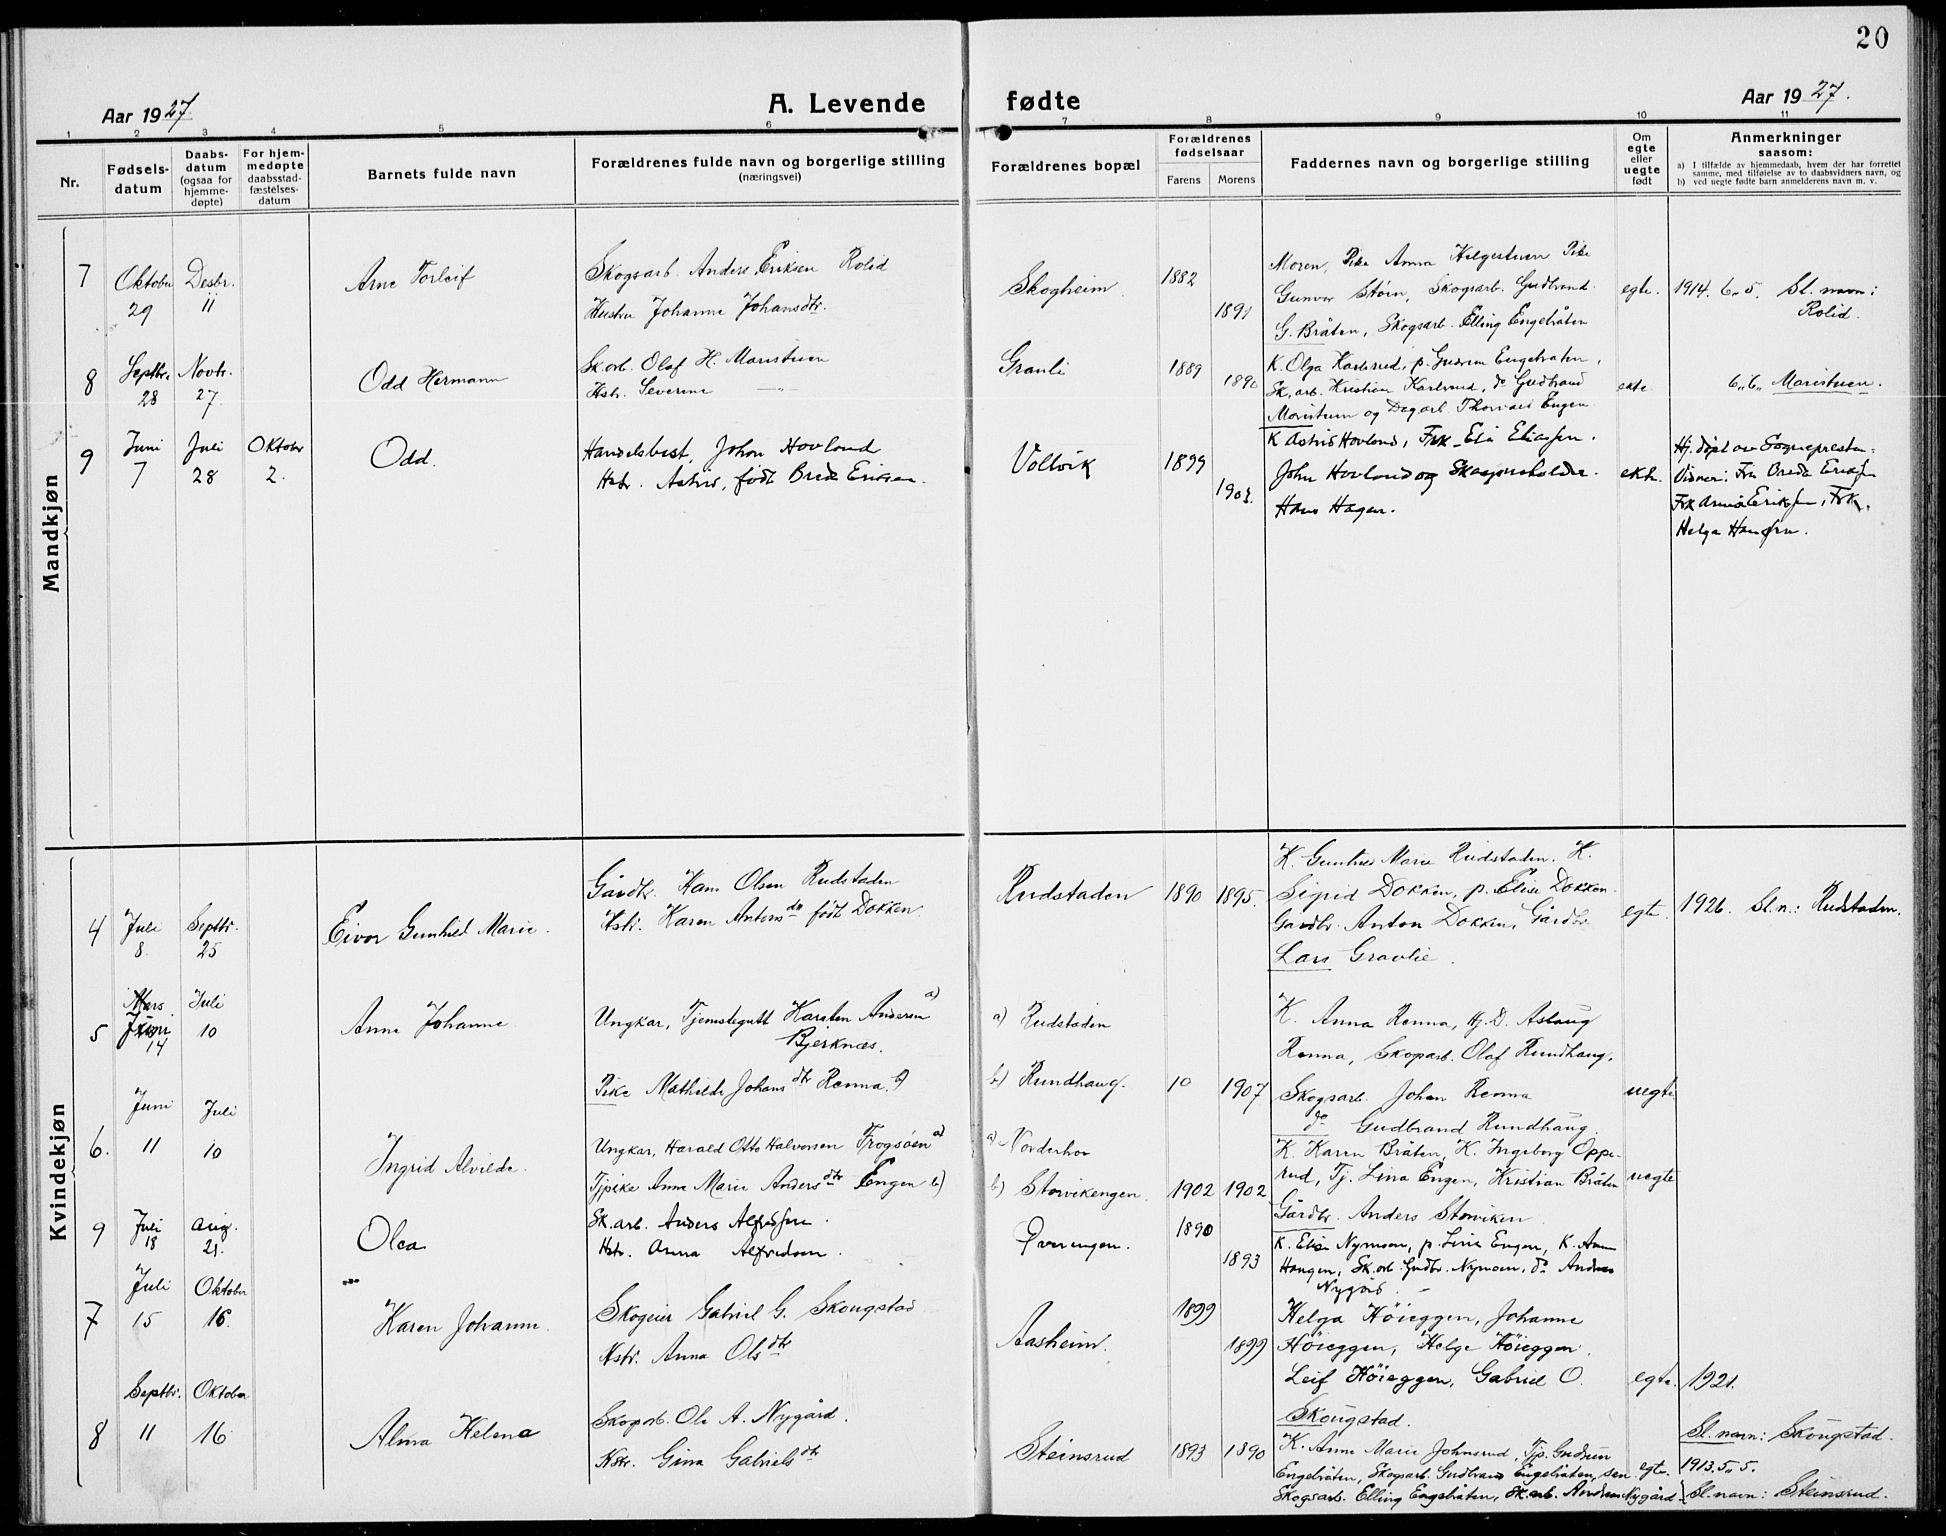 20
Aar 1927.
A. Levende fødte
Aar 1927.
1 2 3 4 5 6 7 8 9 10 11
Nr.
Fødsels-
datum
Daabs-
datum
(ogsaa for
hjemme-
døpte)
For hjem-
medøpte
daabsstad-
fæstelses-
datum
Barnets fulde navn
Forældrenes fulde navn og borgerlige stilling
(næringsvei)
Forældrenes bopæl
Forældrenes
fødselsaar
Farens Morens
Faddernes navn og borgerlige stilling
Om
egte
eller
uegte
født
Anmerkninger
saasom:
a) I tilfælde av hjemmedaab, hvem der har forrettet
samme, med tilføielse av to daabsvidners navn, og
b) ved uegte fødte barn anmelderens navn m. v.
Mandkjøn
7 Oktober 29 Desbr. 11
Arne Torleif
Skogsarb. Anders Eriksen Rolid
Hustru Johanne Johansdtr.
Skogheim
1882
1891
Moren, Pike Anna Helgestuen Pike
Gunvor Støen, Skogsarb. Gudbrand
G. Bråten, Skogsarb. Elling Engebråten
egte.
1914. 6.. 5. Sl. navn:
Rolid.
8 Septbr. 28 Novbr. 27.
Odd Hermann
Sk.arb. Olaf H. Maristuen
Hstr. Severine —"—
Granli
1889
1890
K. Olga Karlsrud, p. Gudrun Engebråten,
Sk.arb. Kristian Karlsrud, do Gudbrand
Maristuen og Dagarb. Thorvald Engen
ekte
6.. 6.. Maristuen.
9 Juni 7 Juli 28 Oktober 2.
Odd.
Handelsbest. Johan Hovland
Hstr. Astrid, født Brede Eriksen.
Vollvik
1899
K Astrid Hovland, Frk. Elie Eliassen.
John Hovland og Skogsrusholder.
Hans Hagen.
ekte.
Hj. døpt av Sognepresten.
Vidner: Fru Breda Eriksen
Frk Anna Eriksen, Frk.
Helga Hansen.
Kvindekjøn
4 Juli 8. Septbr. 25
Eivor Gunhild Marie.
Gårdbr. Hans Olsen Rudstaden
Hstr. Karen Antonsdtr født Dokken.
Rudstaden
1890 1895.
K. Gunhild Marie Rudstaden. K.
Sigrid Dokken, p. Elise Dokken
Gårdbr. Anton Dokken, Gårdbr.
Lars Gravlie.
egte.
1926. Sl.n.: Rudstaden.
5 Mars Juni 14 Juli 10
Anne Johanne
Ungkar, Tjenestegutt Karsten Andersen a)
Bjerknæs.
Pike Mathilde Johansdtr Renna. b)
a) Rudstaden
b) Rundhaug.
10 1907
K. Anna Renna, Hj.D. Aslaug
Renna, Skogsarb. Olaf Rundhaug,
Skogsarb. Johan Renna
do Gudbrand Rundhaug.
uegte.
6. Juni 11 Juli 10
Ingrid Alvilde.
Ungkar, Harald Otto Halvorsen Frogsøen a)
Tjpike Anne Marie Andersdtr Engen b)
a) Norderhov
b) Storvikengen.
1902 1902
K. Karen Bråten, K. Ingeborg Oppe-
rud, Tj. Lina Engen, Kristian Bråten
Gårdbr. Anders Storviken
uegte
9 Juli 18 Aug. 21.
Olea
Sk.arb. Anders Alfredsen.
Hstr. Anna Alfredsen.
1890
1893
K. Elise Nymoen, p. Lina Engen, K. Anne
Haugen, Sk.arb. Gudbr. Nymoen, do Andreas
Nygård.
7 Juli 15 Oktober 16.
Karen Johanne.
Skogeier Gabriel G. Skougstad
Hstr. Anna Olsdtr
Aasheim.
1899
1899
Helga Höieggen, Johanne
Höieggen, Helge Höieggen.
Leif Höieggen, Gabriel O.
Skougstad.
egte.
1921.
Sl. navn: Skougstad.
8 Septbr. 11 Oktober 16
Alma Helena
Skogsarb. Ole A. Nygård.
Hstr. Gina Gabrielsdtr
Steinsrud
1893 1890
K. Anne Marie Johnsrud, Tjp. Gudrun
Engebråten, Skogsarb. Gudbrand Engebråten, sen
Skogsarb. Elling Engebråten, Sk.arb. Andreas Nygård
egte.
1913. 5.. 5.
Sl. navn: Steinsrud.